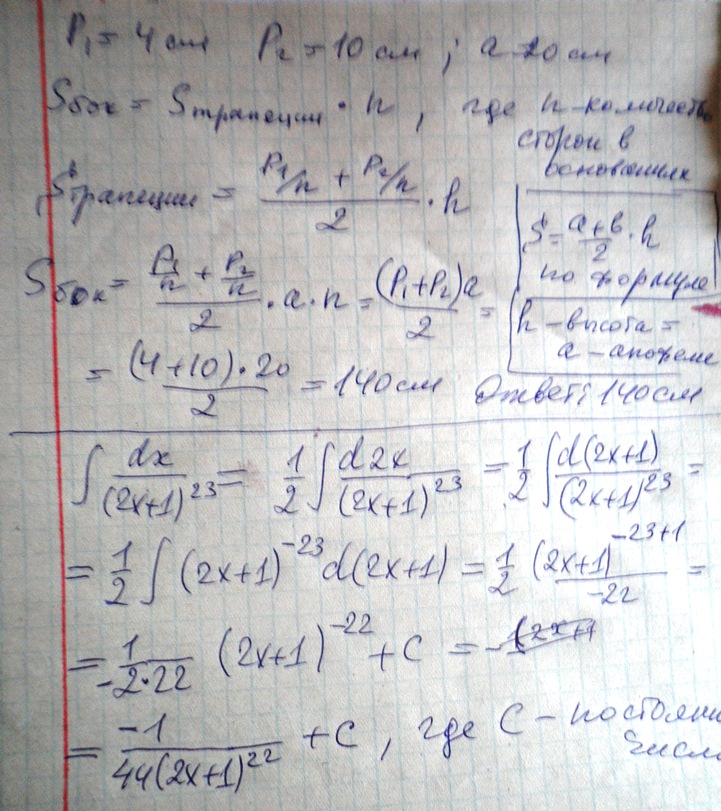 P₁ = 4 см P₂ = 10 см ; a = 20 см
Sбок = Sтрапеции · n , где n - количество
сторон в
основаниях
Sтрапеции = (P₁/n + P₂/n)/2 · h
S = (a+b)/2 · h
по формуле
Sбок = (P₁/n + P₂/n)/2 · a · n = (P₁+P₂)a/2 =
h - высота =
a - апофеме
= (4+10)·20/2 = 140 см Ответ: 140 см
∫ dx/(2x+1)²³ = 1/2 ∫ d2x/(2x+1)²³ = 1/2 ∫ d(2x+1)/(2x+1)²³ =
= 1/2 ∫ (2x+1)⁻²³ d(2x+1) = 1/2 (2x+1)⁻²³⁺¹/-22 =
= 1/-2·22 (2x+1)⁻²² + C = -
= -1/44(2x+1)²² + C , где C - постоянн
число